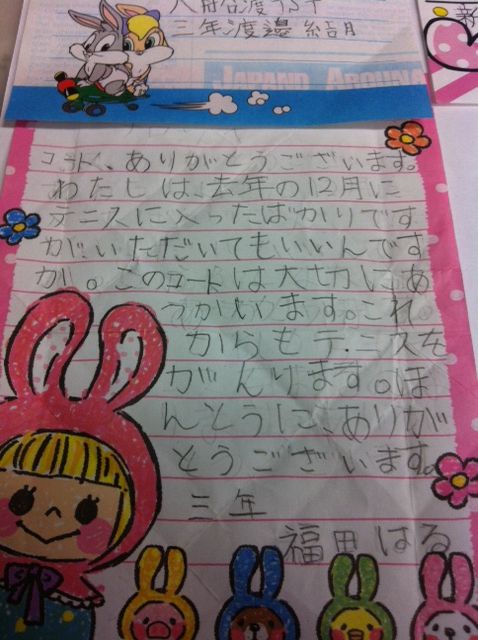 三年渡邉結月
コート、ありがとうございます。
わたしは去年の12月に
テニスに入ったばかりです
が、いただいてもいいんです
か。このコートは大切にあ
つかいます。これ
からもテニスを
がんばります。ほ
んとうに、ありが
とうございます。
三年
福田はる